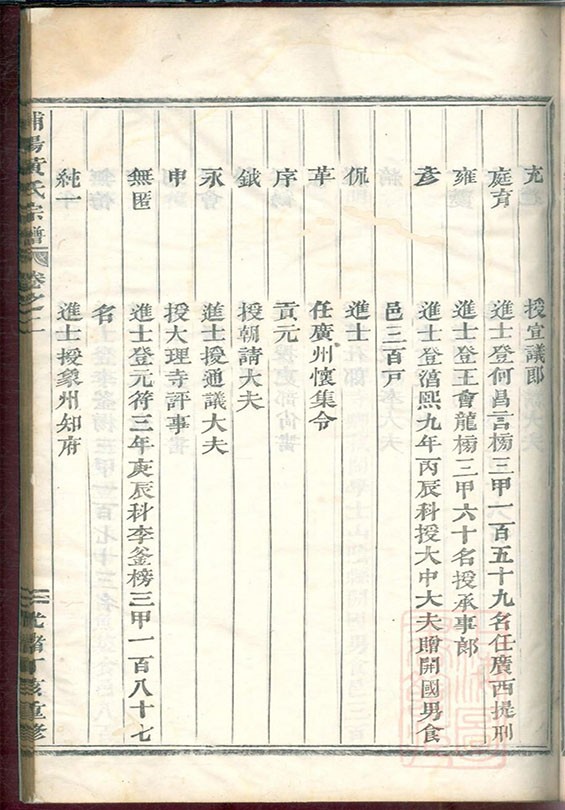 充 授宣議郎
庭育 進士登何昌言榜三甲一百五十九名任廣西提刑
雍 進士登王會龍榜三甲六十名授承事郎
彥 進士登淳熙九年丙辰科授大中大夫贈開國男食
邑三百戸
侃 進士
革 任廣州懷集令
序 貢元
鉞 授朝請大夫
永 進士授通議大夫
申 授大理寺評事
無匿 進士登元符三年庚辰科李釜榜三甲一百八十七
名
純一 進士授象州知府
浦陽黃氏宗譜 卷之一 光緒丁亥重修